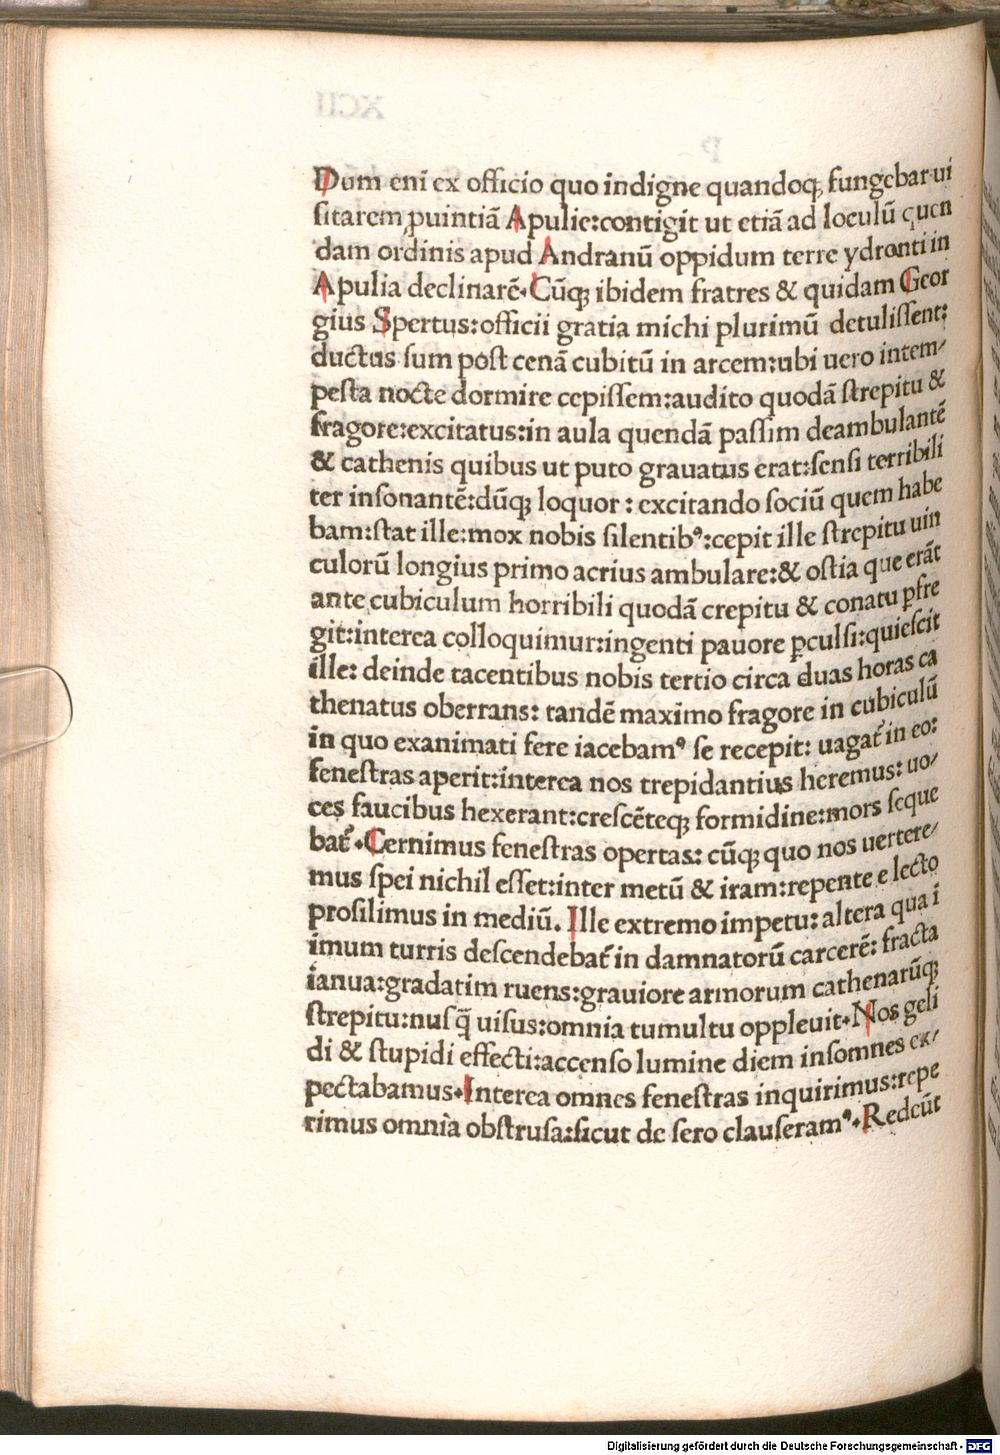 Dum eni ex officio quo indigne quandoqꝫ fungebar ui
sitarem ꝓuintiā Apulie:contigit ut etiā ad loculū quen
dam ordinis apud Andranū oppidum terre ydronti in
Apulia declinarē. Cūqꝫ ibidem fratres & quidam Geor
gius Spertus:officii gratia michi plurimū detulissent:
ductus sum post cenā cubitū in arcem:ubi uero intem⸗
pesta nocte dormire cepissem:audito quodā strepitu &
fragore:excitatus:in aula quendā passim deambulantē
& cathenis quibus ut puto grauatus erat:sensi terribili
ter insonantē:dūqꝫ loquor : excitando sociū quem habe
bam:stat ille:mox nobis silentibꝰ:cepit ille strepitu uin
culorū longius primo acrius ambulare:& ostia que erāt
ante cubiculum horribili quodā crepitu & conatu ꝑfre
git:interea colloquimur:ingenti pauore ꝑculsi:quiescit
ille: deinde tacentibus nobis tertio circa duas horas ca
thenatus oberrans: tandē maximo fragore in cubiculū
in quo exanimati fere iacebamꝰ se recepit: uagat᷑ in eo:
fenestras aperit:interea nos trepidantius heremus: uo⸗
ces faucibus hexerant:crescēteqꝫ formidine:mors seque
bat᷑. Cernimus fenestras opertas: cūqꝫ quo nos uertere⸗
mus spei nichil esset:inter metū & iram:repente e lecto
prosilimus in mediū. Ille extremo impetu: altera qua ī
imum turris descendebat᷑ in damnatorū carcerē: fracta
ianua:gradatim ruens:grauiore armorum cathenarūqꝫ
strepitu:nusq̄ uisus:omnia tumultu oppleuit. Nos geli
di & stupidi effecti:accenso lumine diem insomnes ex⸗
pectabamus. Interea omnes fenestras inquirimus:repe
rimus omnia obstrusa:sicut de sero clauseramꝰ. Redeūt
XCII
P
Digitalisierung gefördert durch die Deutsche Forschungsgemeinschaft - DFG